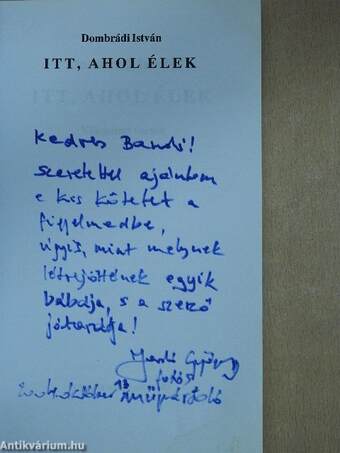 Dombrádi István
ITT, AHOL ÉLEK
Kedves Bandi!
Szeretettel ajánlom
e kis kötetet a
figyelmedbe,
úgyis, mint melynek
létrejöttének egyik
bábája, s a szerző
jóbarátja!
György
fotós
műpártoló
Antikvárium.hu